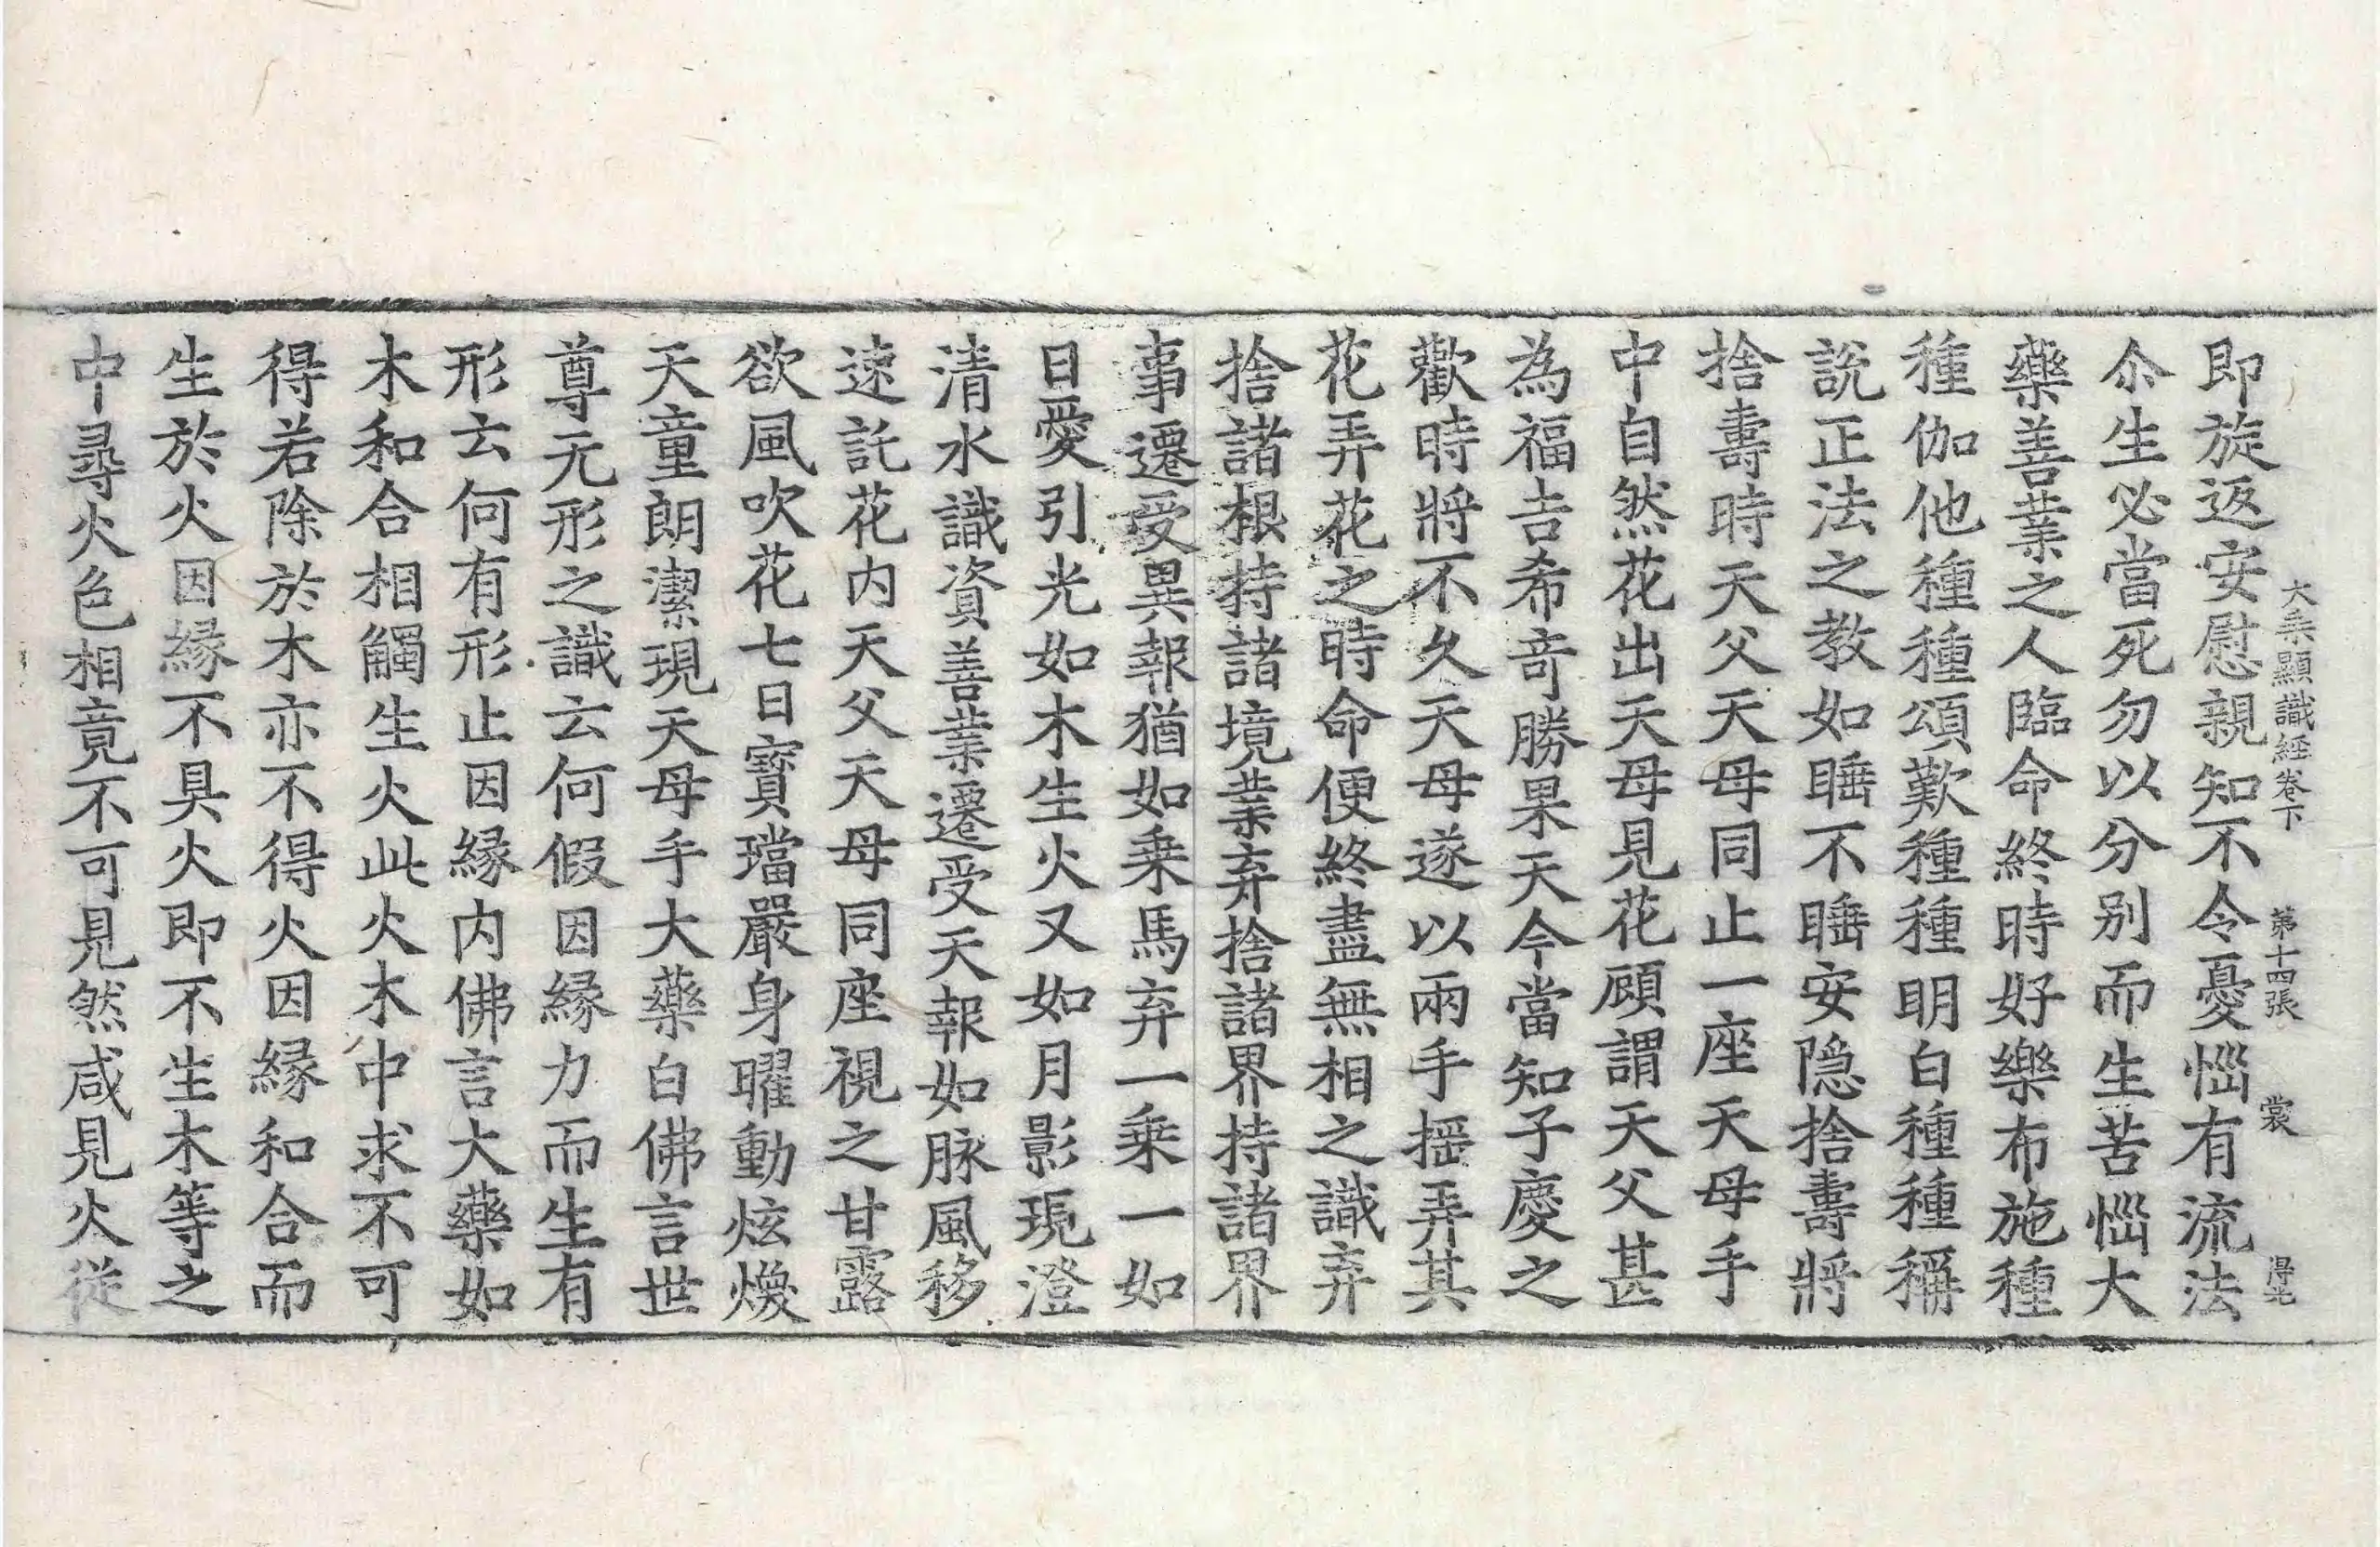 大乗顯識經卷下　第十四張　裳　得老
即旋返安慰親知不令憂惱有流法
尒生必當死勿以分别而生苦惱大
藥善業之人臨命終時好樂布施種
種伽他種種頌歎種種明白種種稱
說正法之教如睡不睡安隱捨壽將
捨壽時天父天母同止一座天母手
中自然花出天母見花顧謂天父甚
為福吉希竒勝果天今當知子慶之
歡時將不久天母遂以兩手摇弄其
花弄花之時命便終盡無相之識弃
捨諸根持諸境業弃捨諸界持諸界
事遷受異報猶如乗馬弃一乗一如
日愛引光如木生火又如月影現澄
清水識資善業遷受天報如脉風移
速託花内天父天母同座視之甘露
欲風吹花七日寳璫嚴身曜動炫煥
天童朗潔現天母手大藥白佛言世
尊无形之識云何假因縁力而生有
形云何有形止因縁内佛言大藥如
木和合相觸生火此火木中求不可
得若除於木亦不得火因縁和合而
生於火因縁不具火即不生木等之
中尋火色相竟不可見然咸見火從